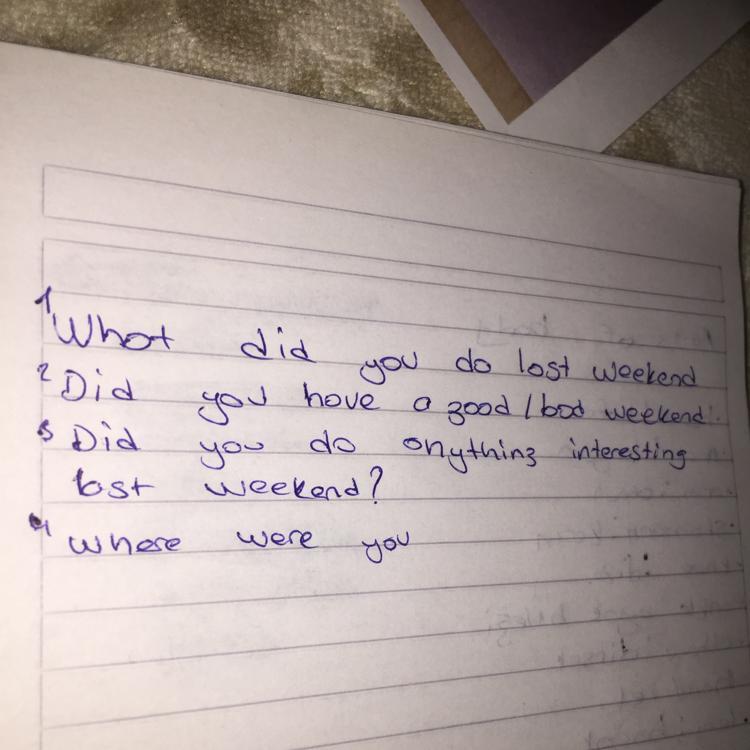 1 What did you do last weekend
2 Did you have a good / bad weekend
3 Did you do anything interesting
last weekend?
4 Where were you